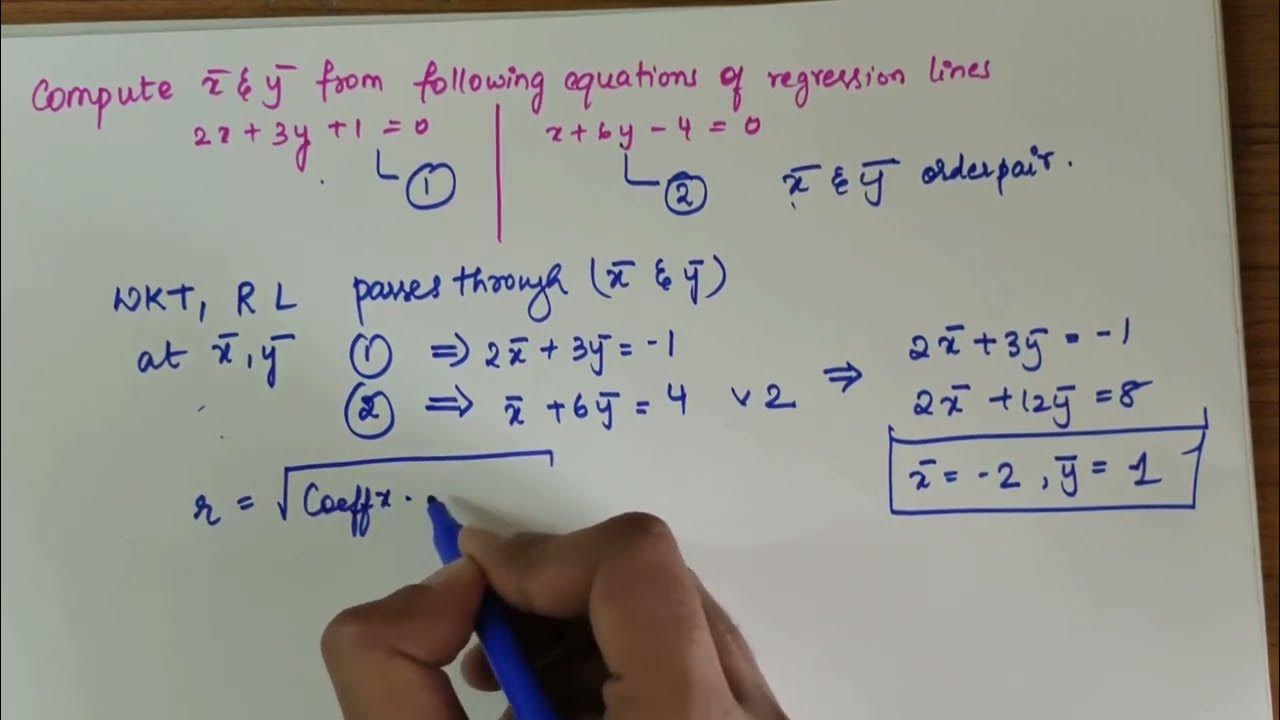 Compute x̄ & ȳ from following equations of regression lines
2x + 3y + 1 = 0 | x + 6y - 4 = 0
① ② x̄ & ȳ orderpair.
WKT, R L passes through (x̄ & ȳ)
at x̄, ȳ ① ⇒ 2x̄ + 3ȳ = -1
② ⇒ x̄ + 6ȳ = 4 × 2 ⇒
2x̄ + 3ȳ = -1
2x̄ + 12ȳ = 8
x̄ = -2, ȳ = 1
r = √Coeff x ·